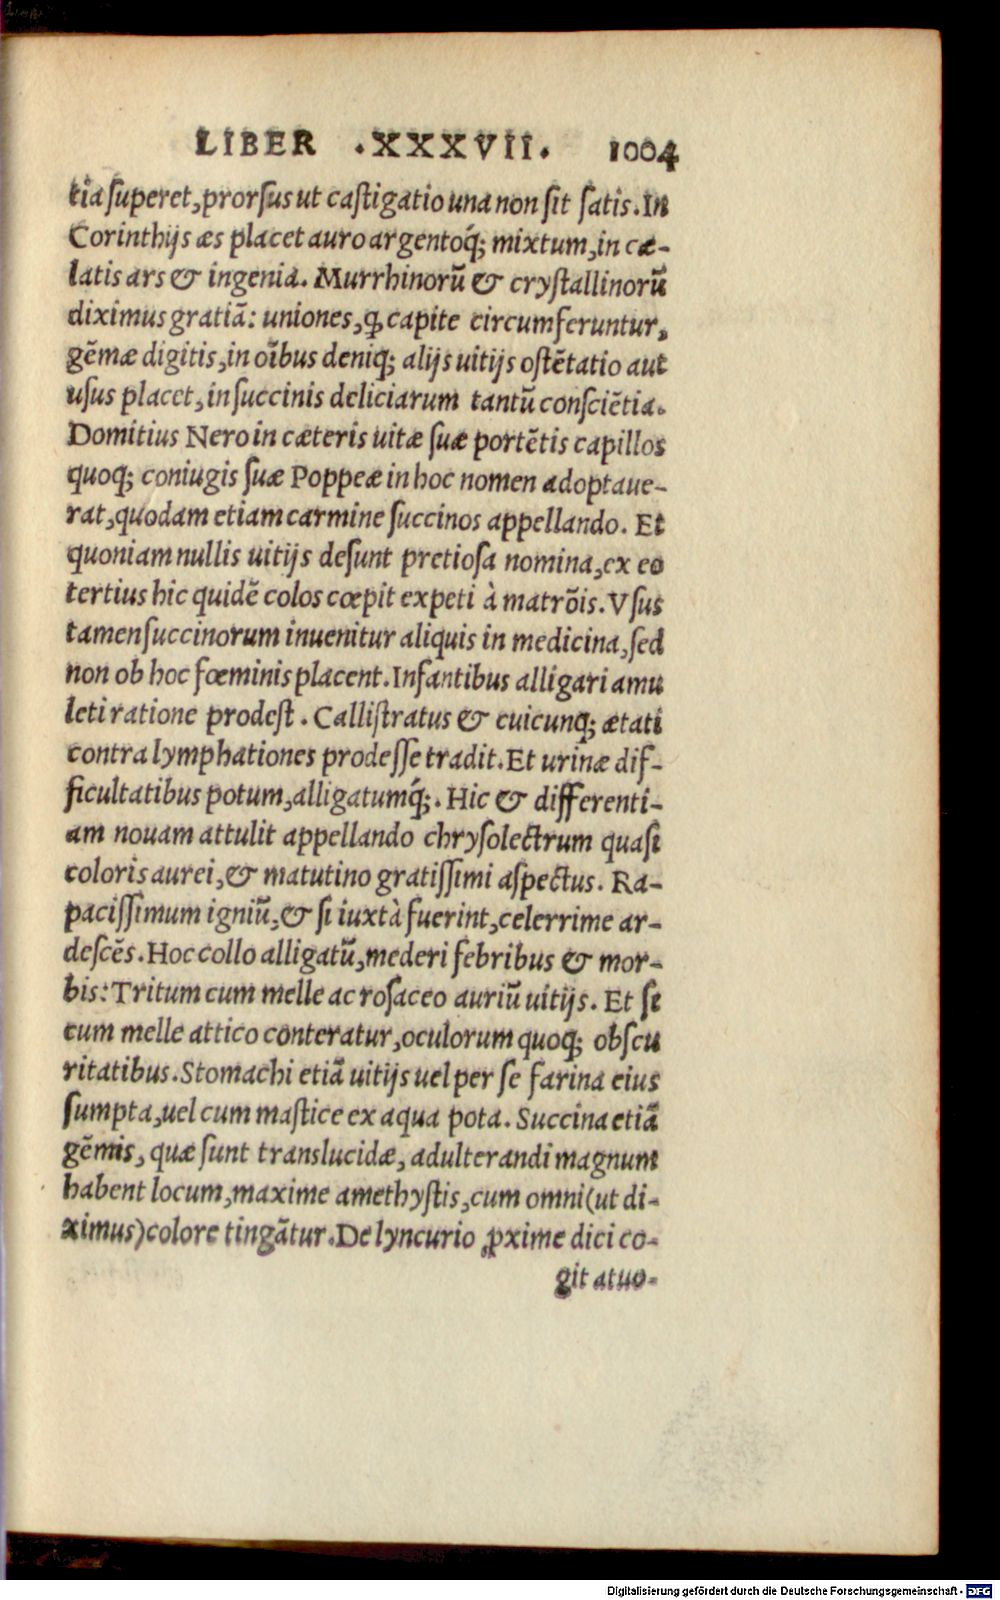 LIBER .XXXVII. 1004
tia superet, prorsus ut castigatio una non sit satis. In
Corinthijs æs placet auro argentoq́; mixtum, in cæ-
latis ars & ingenia. Murrhinorũ & crystallinorũ
diximus gratiã: uniones, ꝗ capite circumferuntur,
gẽmæ digitis, in oĩbus deniq; alijs uitijs ostẽtatio aut
usus placet, in succinis deliciarum tantũ consciẽtia.
Domitius Nero in cæteris uitæ suæ portẽtis capillos
quoq; coniugis suæ Poppeæ in hoc nomen adoptaue-
rat, quodam etiam carmine succinos appellando. Et
quoniam nullis uitijs desunt pretiosa nomina, ex eo
tertius hic quidẽ colos cœpit expeti à matrõis. Vsus
tamen succinorum inuenitur aliquis in medicina, sed
non ob hoc fœminis placent. Infantibus alligari amu
leti ratione prodest. Callistratus & cuicunq; ætati
contra lymphationes prodesse tradit. Et urinæ dif-
ficultatibus potum, alligatumq́;. Hic & differenti-
am nouam attulit appellando chrysolectrum quasi
coloris aurei, & matutino gratissimi aspectus. Ra-
pacissimum igniũ, & si iuxtà fuerint, celerrime ar-
descẽs. Hoc collo alligatũ, mederi febribus & mor-
bis: Tritum cum melle ac rosaceo auriũ uitijs. Et si
cum melle attico conteratur, oculorum quoq; obscu
ritatibus. Stomachi etiã uitijs uel per se farina eius
sumpta, uel cum mastice ex aqua pota. Succina etiã
gẽmis, quæ sunt translucidæ, adulterandi magnum
habent locum, maxime amethystis, cum omni (ut di-
ximus) colore tingãtur. De lyncurio ꝓxime dici co-
git atuo-
Digitalisierung gefördert durch die Deutsche Forschungsgemeinschaft - DFG